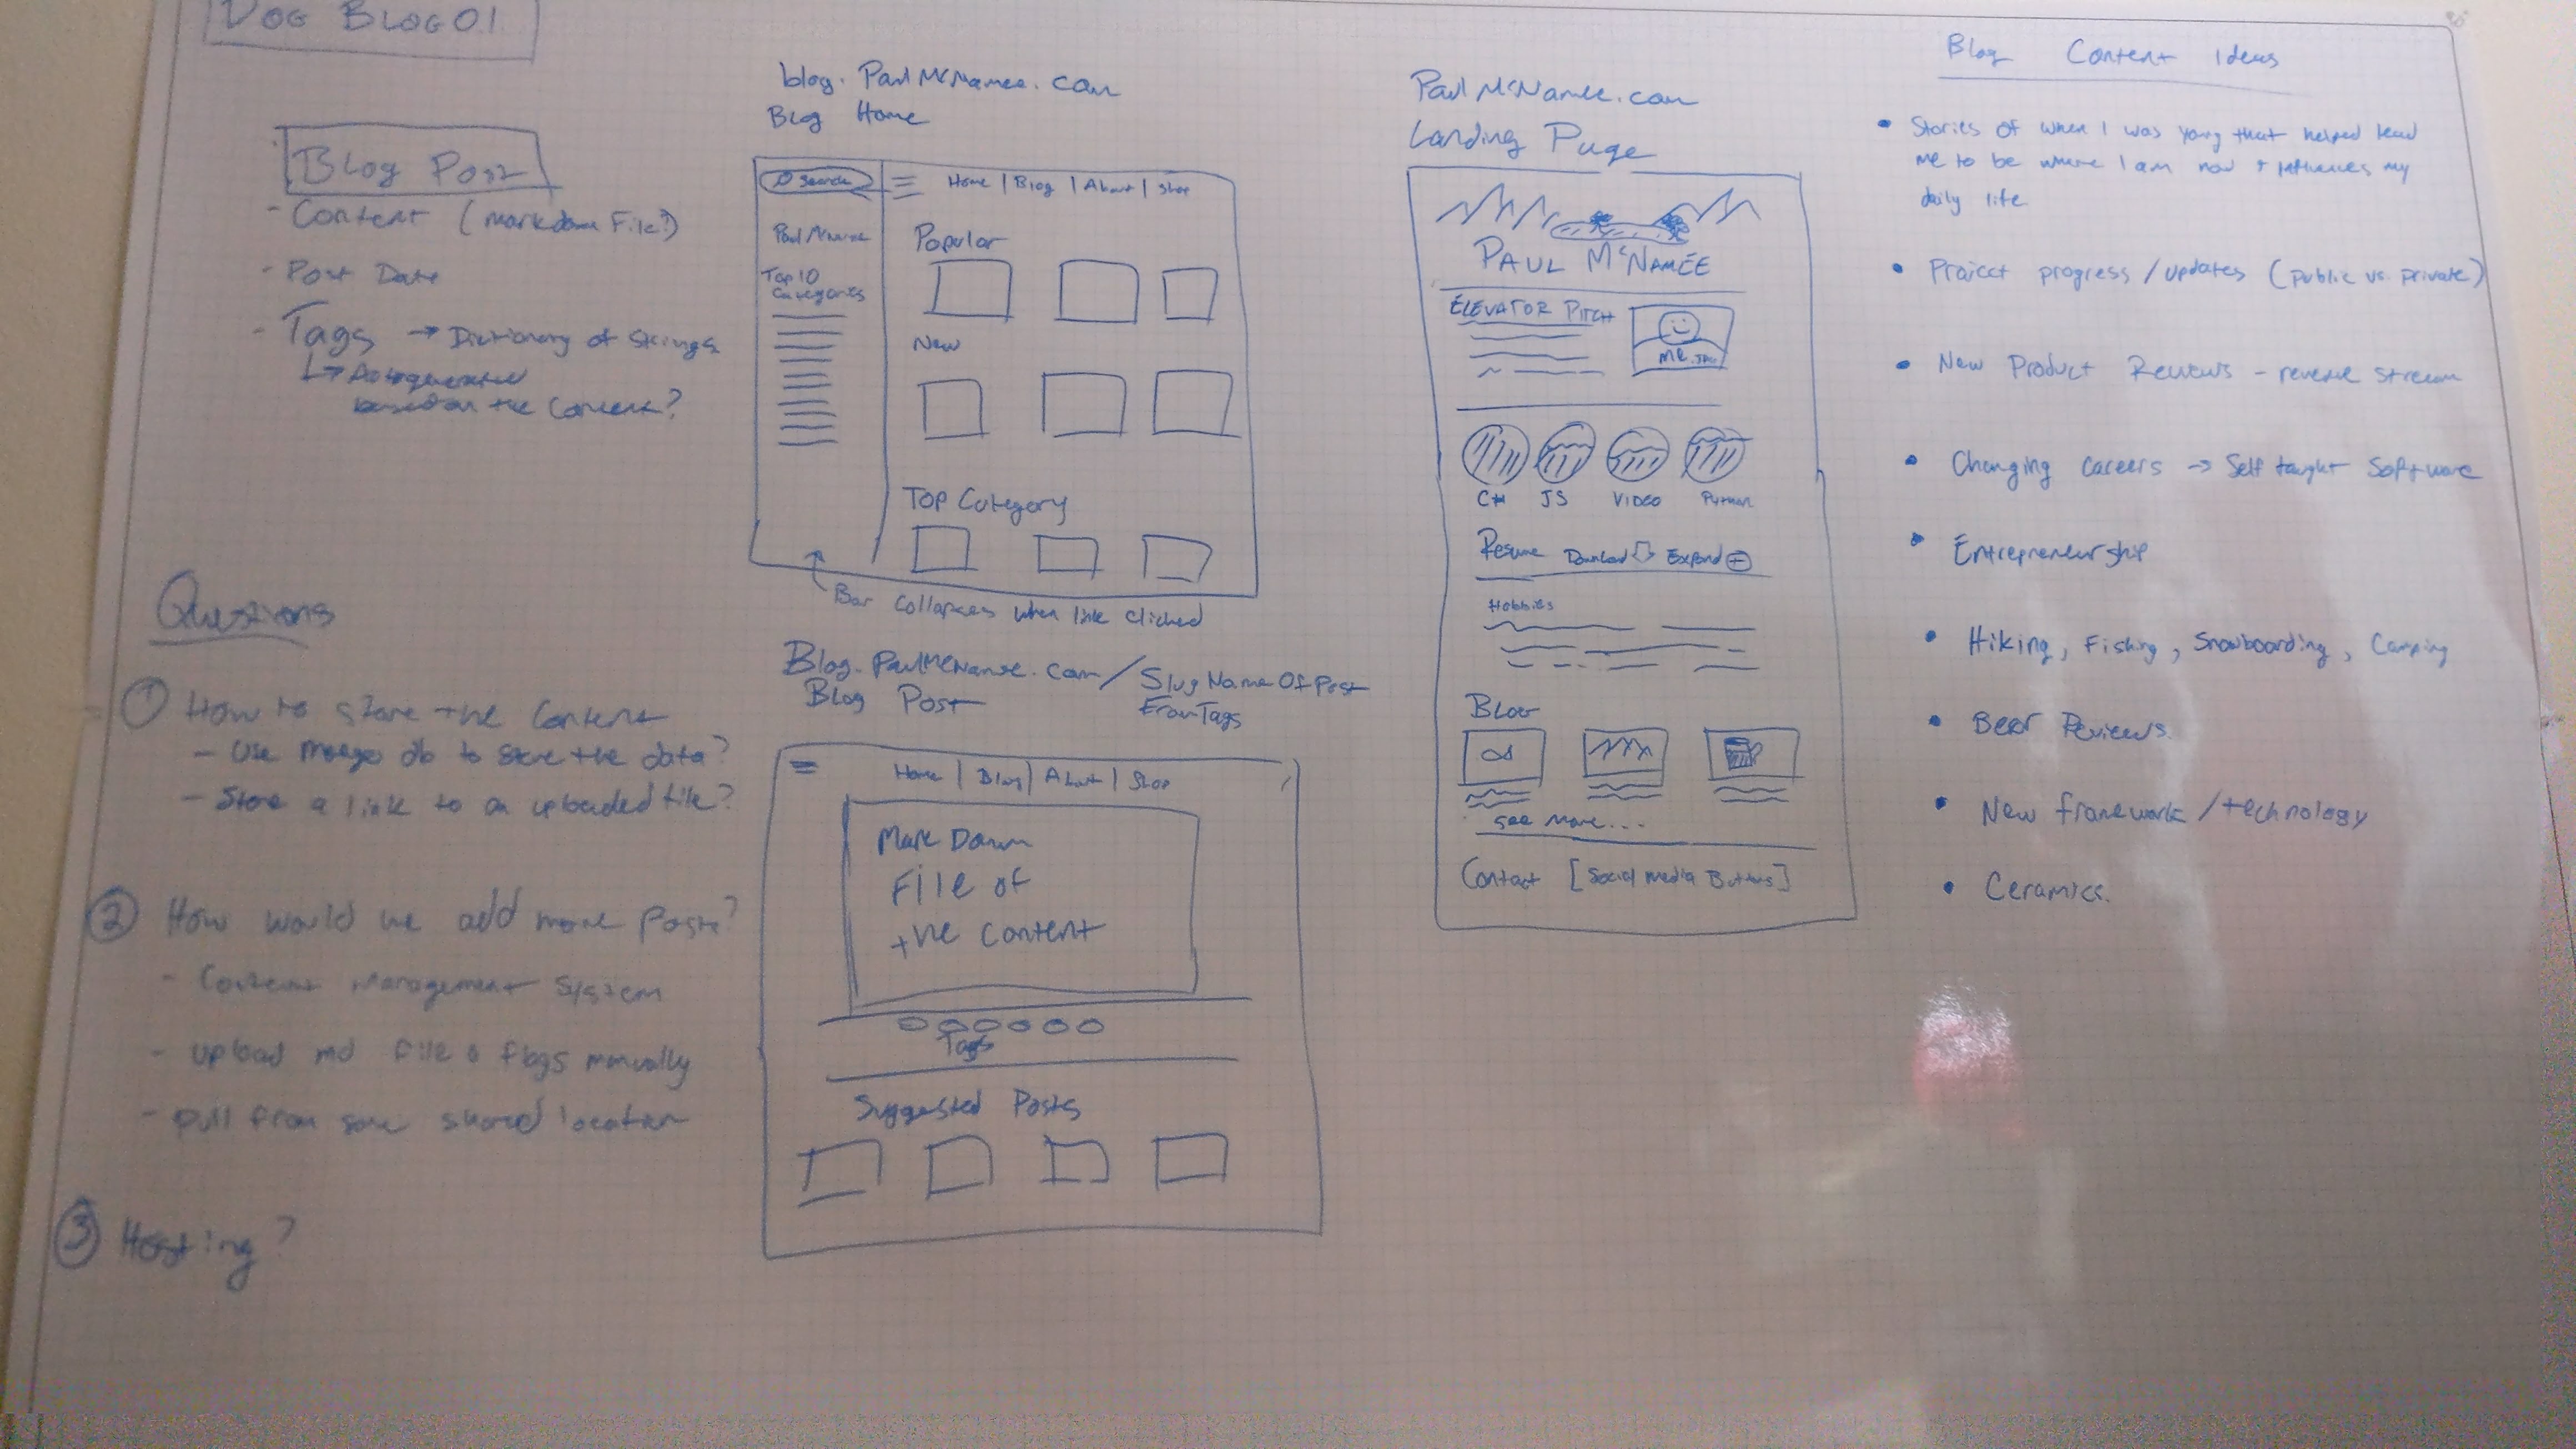 DOG BLOG 0.1
Blog Post
- Content (markdown File?)
- Post Date
- Tags → Dictionary of strings
↳ Autogenerated
based on the content?
Questions
① How to store the content
- Use mongo db to store the data?
- Store a link to an uploaded file?
② How would we add more posts?
- Content Management System
- upload md file & flags manually
- pull from some shared location
③ Hosting?
blog.PaulMcNamee.com
Blog Home
Search
Home | Blog | About | Shop
Paul McNamee
Top 10
Categories
Popular
New
Top Category
Bar collapses when link clicked
Blog.PaulMcNamee.com/SlugNameOfPost
Blog Post
From Tags
Home | Blog | About | Shop
Mark Down
File of
the content
Tags
Suggested Posts
PaulMcNamee.com
Landing Page
PAUL McNAMEE
ELEVATOR PITCH
ME
C# JS VIDEO Python
Resume Download Expand
Hobbies
BLOG
See More...
Contact [Social Media Buttons]
Blog Content Ideas
• Stories of when I was young that helped lead
me to be where I am now + influences my
daily life
• Project progress/updates (public vs. private)
• New Product Reviews - revenue stream
• Changing careers → Self taught software
• Entrepreneurship
• Hiking, Fishing, Snowboarding, Camping
• Beer Reviews.
• New framework/technology
• Ceramics.